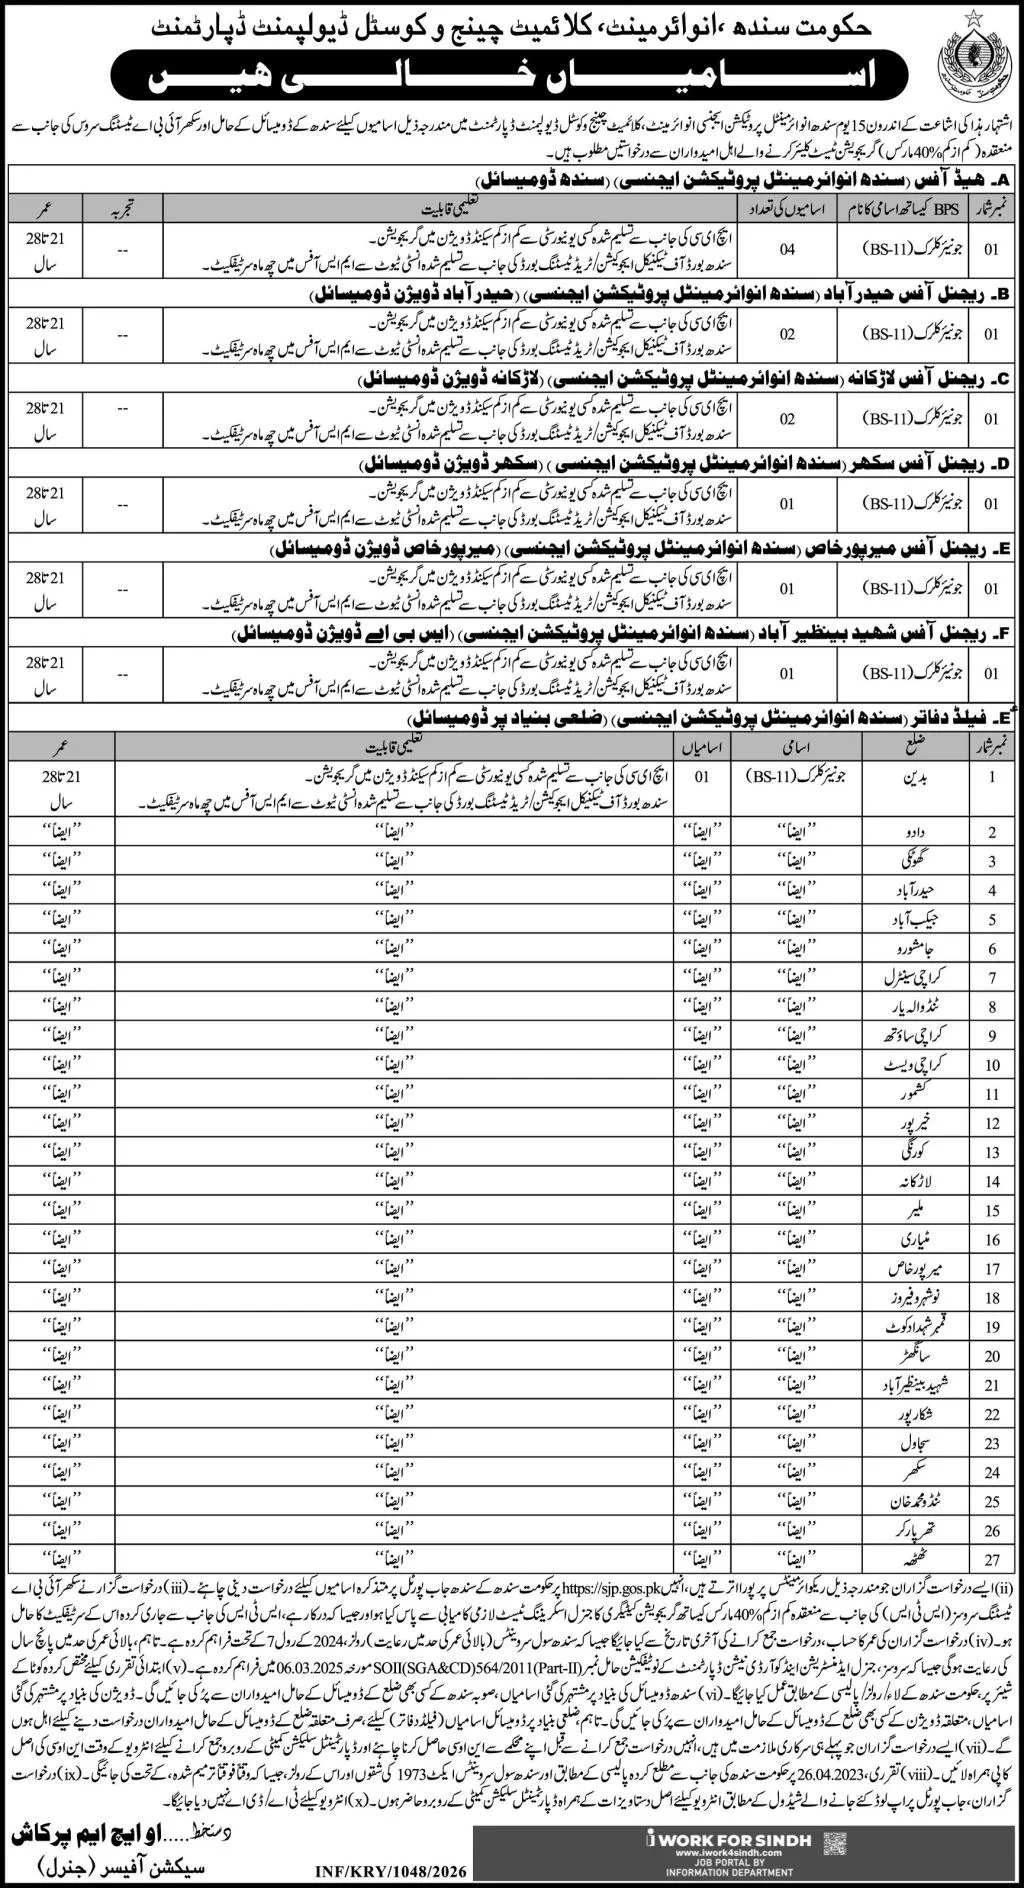 حکومت سندھ ،انوائرمینٹ، کلائمیٹ چینج و کوسٹل ڈیولپمنٹ ڈپارٹمنٹ
اسامیاں خالی ہیں
اشتہار ہٰذا کی اشاعت کے اندرون 15 یوم سندھ انوائرمینٹل پروٹیکشن ایجنسی انوائرمینٹ، کلائمیٹ چینج و کوسٹل ڈیولپمنٹ ڈپارٹمنٹ میں مندرجہ ذیل اسامیوں کیلئے سندھ کے ڈومیسائل کے حامل اور سکھر آئی بی اے ٹیسٹنگ سروس کی جانب سے
منعقدہ (کم از کم %40 مارکس) گریجویشن ٹیسٹ کلیئر کرنے والے اہل امیدواران سے درخواستیں مطلوب ہیں۔
A۔ ہیڈ آفس (سندھ انوائرمینٹل پروٹیکشن ایجنسی) (سندھ ڈومیسائل)
نمبر شمار BPS کیساتھ اسامی کا نام اسامیوں کی تعداد تعلیمی قابلیت تجربہ عمر
01 جونیئر کلرک (BS-11) 04 ایچ ای سی کی جانب سے تسلیم شدہ کسی یونیورسٹی سے کم از کم سیکنڈ ڈویژن میں گریجویشن۔ -- 21 تا 28
سندھ بورڈ آف ٹیکنیکل ایجوکیشن/ٹریڈ ٹیسٹنگ بورڈ کی جانب سے تسلیم شدہ انسٹی ٹیوٹ سے ایم ایس آفس میں چھ ماہ سرٹیفکیٹ۔ سال
B۔ ریجنل آفس حیدرآباد (سندھ انوائرمینٹل پروٹیکشن ایجنسی) (حیدرآباد ڈویژن ڈومیسائل)
01 جونیئر کلرک (BS-11) 02 ایچ ای سی کی جانب سے تسلیم شدہ کسی یونیورسٹی سے کم از کم سیکنڈ ڈویژن میں گریجویشن۔ -- 21 تا 28
سندھ بورڈ آف ٹیکنیکل ایجوکیشن/ٹریڈ ٹیسٹنگ بورڈ کی جانب سے تسلیم شدہ انسٹی ٹیوٹ سے ایم ایس آفس میں چھ ماہ سرٹیفکیٹ۔ سال
C۔ ریجنل آفس لاڑکانہ (سندھ انوائرمینٹل پروٹیکشن ایجنسی) (لاڑکانہ ڈویژن ڈومیسائل)
01 جونیئر کلرک (BS-11) 02 ایچ ای سی کی جانب سے تسلیم شدہ کسی یونیورسٹی سے کم از کم سیکنڈ ڈویژن میں گریجویشن۔ -- 21 تا 28
سندھ بورڈ آف ٹیکنیکل ایجوکیشن/ٹریڈ ٹیسٹنگ بورڈ کی جانب سے تسلیم شدہ انسٹی ٹیوٹ سے ایم ایس آفس میں چھ ماہ سرٹیفکیٹ۔ سال
D۔ ریجنل آفس سکھر (سندھ انوائرمینٹل پروٹیکشن ایجنسی) (سکھر ڈویژن ڈومیسائل)
01 جونیئر کلرک (BS-11) 01 ایچ ای سی کی جانب سے تسلیم شدہ کسی یونیورسٹی سے کم از کم سیکنڈ ڈویژن میں گریجویشن۔ -- 21 تا 28
سندھ بورڈ آف ٹیکنیکل ایجوکیشن/ٹریڈ ٹیسٹنگ بورڈ کی جانب سے تسلیم شدہ انسٹی ٹیوٹ سے ایم ایس آفس میں چھ ماہ سرٹیفکیٹ۔ سال
E۔ ریجنل آفس میرپورخاص (سندھ انوائرمینٹل پروٹیکشن ایجنسی) (میرپورخاص ڈویژن ڈومیسائل)
01 جونیئر کلرک (BS-11) 01 ایچ ای سی کی جانب سے تسلیم شدہ کسی یونیورسٹی سے کم از کم سیکنڈ ڈویژن میں گریجویشن۔ -- 21 تا 28
سندھ بورڈ آف ٹیکنیکل ایجوکیشن/ٹریڈ ٹیسٹنگ بورڈ کی جانب سے تسلیم شدہ انسٹی ٹیوٹ سے ایم ایس آفس میں چھ ماہ سرٹیفکیٹ۔ سال
F۔ ریجنل آفس شہید بینظیر آباد (سندھ انوائرمینٹل پروٹیکشن ایجنسی) (ایس بی اے ڈویژن ڈومیسائل)
01 جونیئر کلرک (BS-11) 01 ایچ ای سی کی جانب سے تسلیم شدہ کسی یونیورسٹی سے کم از کم سیکنڈ ڈویژن میں گریجویشن۔ -- 21 تا 28
سندھ بورڈ آف ٹیکنیکل ایجوکیشن/ٹریڈ ٹیسٹنگ بورڈ کی جانب سے تسلیم شدہ انسٹی ٹیوٹ سے ایم ایس آفس میں چھ ماہ سرٹیفکیٹ۔ سال
E۔ فیلڈ دفاتر (سندھ انوائرمینٹل پروٹیکشن ایجنسی) (ضلعی بنیاد پر ڈومیسائل)
نمبر شمار ضلع اسامی اسامیاں تعلیمی قابلیت عمر
1 بدین جونیئر کلرک (BS-11) 01 ایچ ای سی کی جانب سے تسلیم شدہ کسی یونیورسٹی سے کم از کم سیکنڈ ڈویژن میں گریجویشن۔ 21 تا 28
سندھ بورڈ آف ٹیکنیکل ایجوکیشن/ٹریڈ ٹیسٹنگ بورڈ کی جانب سے تسلیم شدہ انسٹی ٹیوٹ سے ایم ایس آفس میں چھ ماہ سرٹیفکیٹ۔ سال
2 دادو ”ایضاً“ ”ایضاً“ ”ایضاً“ ”ایضاً“
3 گھوٹکی ”ایضاً“ ”ایضاً“ ”ایضاً“ ”ایضاً“
4 حیدرآباد ”ایضاً“ ”ایضاً“ ”ایضاً“ ”ایضاً“
5 جیکب آباد ”ایضاً“ ”ایضاً“ ”ایضاً“ ”ایضاً“
6 جامشورو ”ایضاً“ ”ایضاً“ ”ایضاً“ ”ایضاً“
7 کراچی سینٹرل ”ایضاً“ ”ایضاً“ ”ایضاً“ ”ایضاً“
8 ٹنڈو الہ یار ”ایضاً“ ”ایضاً“ ”ایضاً“ ”ایضاً“
9 کراچی ساؤتھ ”ایضاً“ ”ایضاً“ ”ایضاً“ ”ایضاً“
10 کراچی ویسٹ ”ایضاً“ ”ایضاً“ ”ایضاً“ ”ایضاً“
11 کشمور ”ایضاً“ ”ایضاً“ ”ایضاً“ ”ایضاً“
12 خیرپور ”ایضاً“ ”ایضاً“ ”ایضاً“ ”ایضاً“
13 کورنگی ”ایضاً“ ”ایضاً“ ”ایضاً“ ”ایضاً“
14 لاڑکانہ ”ایضاً“ ”ایضاً“ ”ایضاً“ ”ایضاً“
15 ملیر ”ایضاً“ ”ایضاً“ ”ایضاً“ ”ایضاً“
16 مٹیاری ”ایضاً“ ”ایضاً“ ”ایضاً“ ”ایضاً“
17 میرپورخاص ”ایضاً“ ”ایضاً“ ”ایضاً“ ”ایضاً“
18 نوشہروفیروز ”ایضاً“ ”ایضاً“ ”ایضاً“ ”ایضاً“
19 قمبر شہدادکوٹ ”ایضاً“ ”ایضاً“ ”ایضاً“ ”ایضاً“
20 سانگھڑ ”ایضاً“ ”ایضاً“ ”ایضاً“ ”ایضاً“
21 شہید بینظیر آباد ”ایضاً“ ”ایضاً“ ”ایضاً“ ”ایضاً“
22 شکارپور ”ایضاً“ ”ایضاً“ ”ایضاً“ ”ایضاً“
23 سجاول ”ایضاً“ ”ایضاً“ ”ایضاً“ ”ایضاً“
24 سکھر ”ایضاً“ ”ایضاً“ ”ایضاً“ ”ایضاً“
25 ٹنڈو محمد خان ”ایضاً“ ”ایضاً“ ”ایضاً“ ”ایضاً“
26 تھرپارکر ”ایضاً“ ”ایضاً“ ”ایضاً“ ”ایضاً“
27 ٹھٹھہ ”ایضاً“ ”ایضاً“ ”ایضاً“ ”ایضاً“
(ii) ایسے درخواست گزاران جو مندرجہ ذیل ریکوائرمینٹس پر پورا اترتے ہیں، انہیں https://sjp.gos.pk پر حکومت سندھ کے سندھ جاب پورٹل پر متذکرہ اسامیوں کیلئے درخواست دینی چاہئے۔ (iii) درخواست گزار نے سکھر آئی بی اے
ٹیسٹنگ سروسز (ایس ٹی ایس) کی جانب سے منعقدہ کم از کم %40 مارکس کیساتھ گریجویشن کیٹیگری کا جنرل اسکریننگ ٹیسٹ لازمی کامیابی سے پاس کیا ہو اور جیسا کہ درکار ہے، ایس ٹی ایس کی جانب سے جاری کردہ اس کے سرٹیفکیٹ کا حامل
ہو۔ (iv) درخواست گزاران کی عمر کا حساب، درخواست جمع کرانے کی آخری تاریخ سے کیا جائیگا جیسا کہ سندھ سول سرونٹس (بالائی عمر کی حد میں رعایت) رولز، 2024 کے رول 7 کے تحت فراہم کردہ ہے۔ تاہم، بالائی عمر کی حد میں پانچ سال
کی رعایت ہوگی جیسا کہ سروسز، جنرل ایڈمنسٹریشن اینڈ کوآرڈی نیشن ڈپارٹمنٹ کے نوٹیفکیشن حامل نمبر SOII(SGA&CD)564/2011(Part-II) مورخہ 06.03.2025 میں فراہم کردہ ہے۔ (v) ابتدائی تقرری کیلئے مختص کردہ کوٹا کے
شیئر پر، حکومت سندھ کے لاء/رولز/پالیسی کے مطابق عمل کیا جائیگا۔ (vi) سندھ ڈومیسائل کی بنیاد پر مشتہر کی گئی اسامیاں، صوبہ سندھ کے کسی بھی ضلع کے ڈومیسائل کے حامل امیدواران سے پر کی جائیں گی۔ ڈویژن کی بنیاد پر مشتہر کی گئی
اسامیاں، متعلقہ ڈویژن کے کسی بھی ضلع کے ڈومیسائل کے حامل امیدواران سے پر کی جائیں گی۔ تاہم، ضلعی بنیاد پر ڈومیسائل اسامیاں (فیلڈ دفاتر) کیلئے، صرف متعلقہ ضلع کے ڈومیسائل کے حامل امیدواران درخواست دینے کیلئے اہل ہوں
گے۔ (vii) ایسے درخواست گزاران جو پہلے ہی سرکاری ملازمت میں ہیں، انہیں درخواست جمع کرانے سے قبل اپنے محکمے سے این او سی حاصل کرنا چاہئے اور ڈپارٹمنٹل سلیکشن کمیٹی کے روبرو جمع کرانے کیلئے انٹرویو کے وقت این او سی کی اصل
کاپی ہمراہ لائیں۔ (viii) تقرری، 26.04.2023 پر حکومت سندھ کی جانب سے مطلع کردہ پالیسی کے مطابق اور سندھ سول سرونٹس ایکٹ 1973 کی شقوں اور اس کے رولز، جیسا کہ وقتاً فوقتاً ترمیم شدہ، کے تحت کی جائیگی۔ (ix) درخواست
گزاران، جاب پورٹل پر اپ لوڈ کئے جانے والے شیڈول کے مطابق انٹرویو کیلئے اصل دستاویزات کے ہمراہ ڈپارٹمنٹل سلیکشن کمیٹی کے روبرو حاضر ہوں۔ (x) انٹرویو کیلئے ٹی اے/ڈی اے نہیں دیا جائیگا۔
دستخط.....او ایچ ایم پرکاش
سیکشن آفیسر (جنرل)
INF/KRY/1048/2026
i WORK FOR SINDH
www.iwork4sindh.com
JOB PORTAL BY
INFORMATION DEPARTMENT